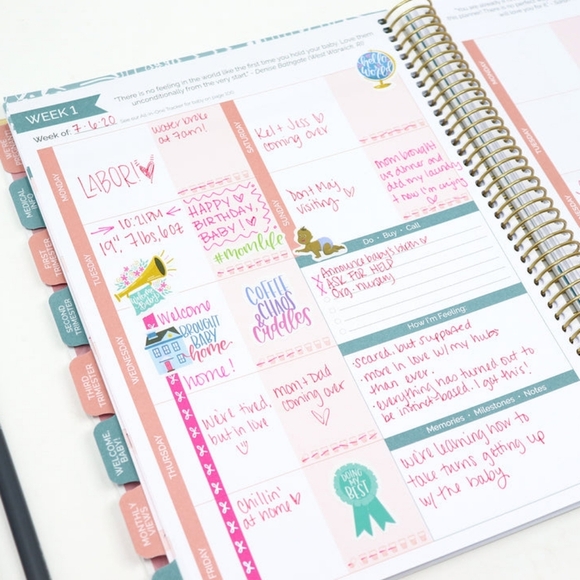 WEEK 1
"There is no feeling in the world like the first time you hold your baby. Love them
unconditionally from the very start" - Denise Bathgate (West Warwick, RI)
Week of: 7-6-20
MONDAY
LABOR!
water broke
at 7am!
TUESDAY
10:21PM
19", 7lbs, 6oz
HAPPY
BIRTHDAY,
BABY!
#momlife
WEDNESDAY
Welcome
BROUGHT
BABY
home
home!
COFFEE
& CHAOS
& CUDDLES
THURSDAY
we're tired
but in love
mom + Dad
coming over
FRIDAY
Chillin'
at home
DOING MY
BEST
SATURDAY
Kel + Jess
coming over
hello
world
SUNDAY
Don + May
visiting
mom brought
us dinner and
did my laundry
+ now I'm crying
Do • Buy • Call
Announce baby's born
ASK FOR HELP
Org. nursery
How I'm Feeling
scared, but supported
more in love w/ my hubs
than ever.
everything has turned out to
be instinct-based. I got this!
Memories • Milestones • Notes
we're learning how to
take turns getting up
w/ the baby
MEDICAL
INFO
FIRST
TRIMESTER
SECOND
TRIMESTER
THIRD
TRIMESTER
WELCOME
BABY!
MONTHLY
VIEWS
MONDAY
TUESDAY